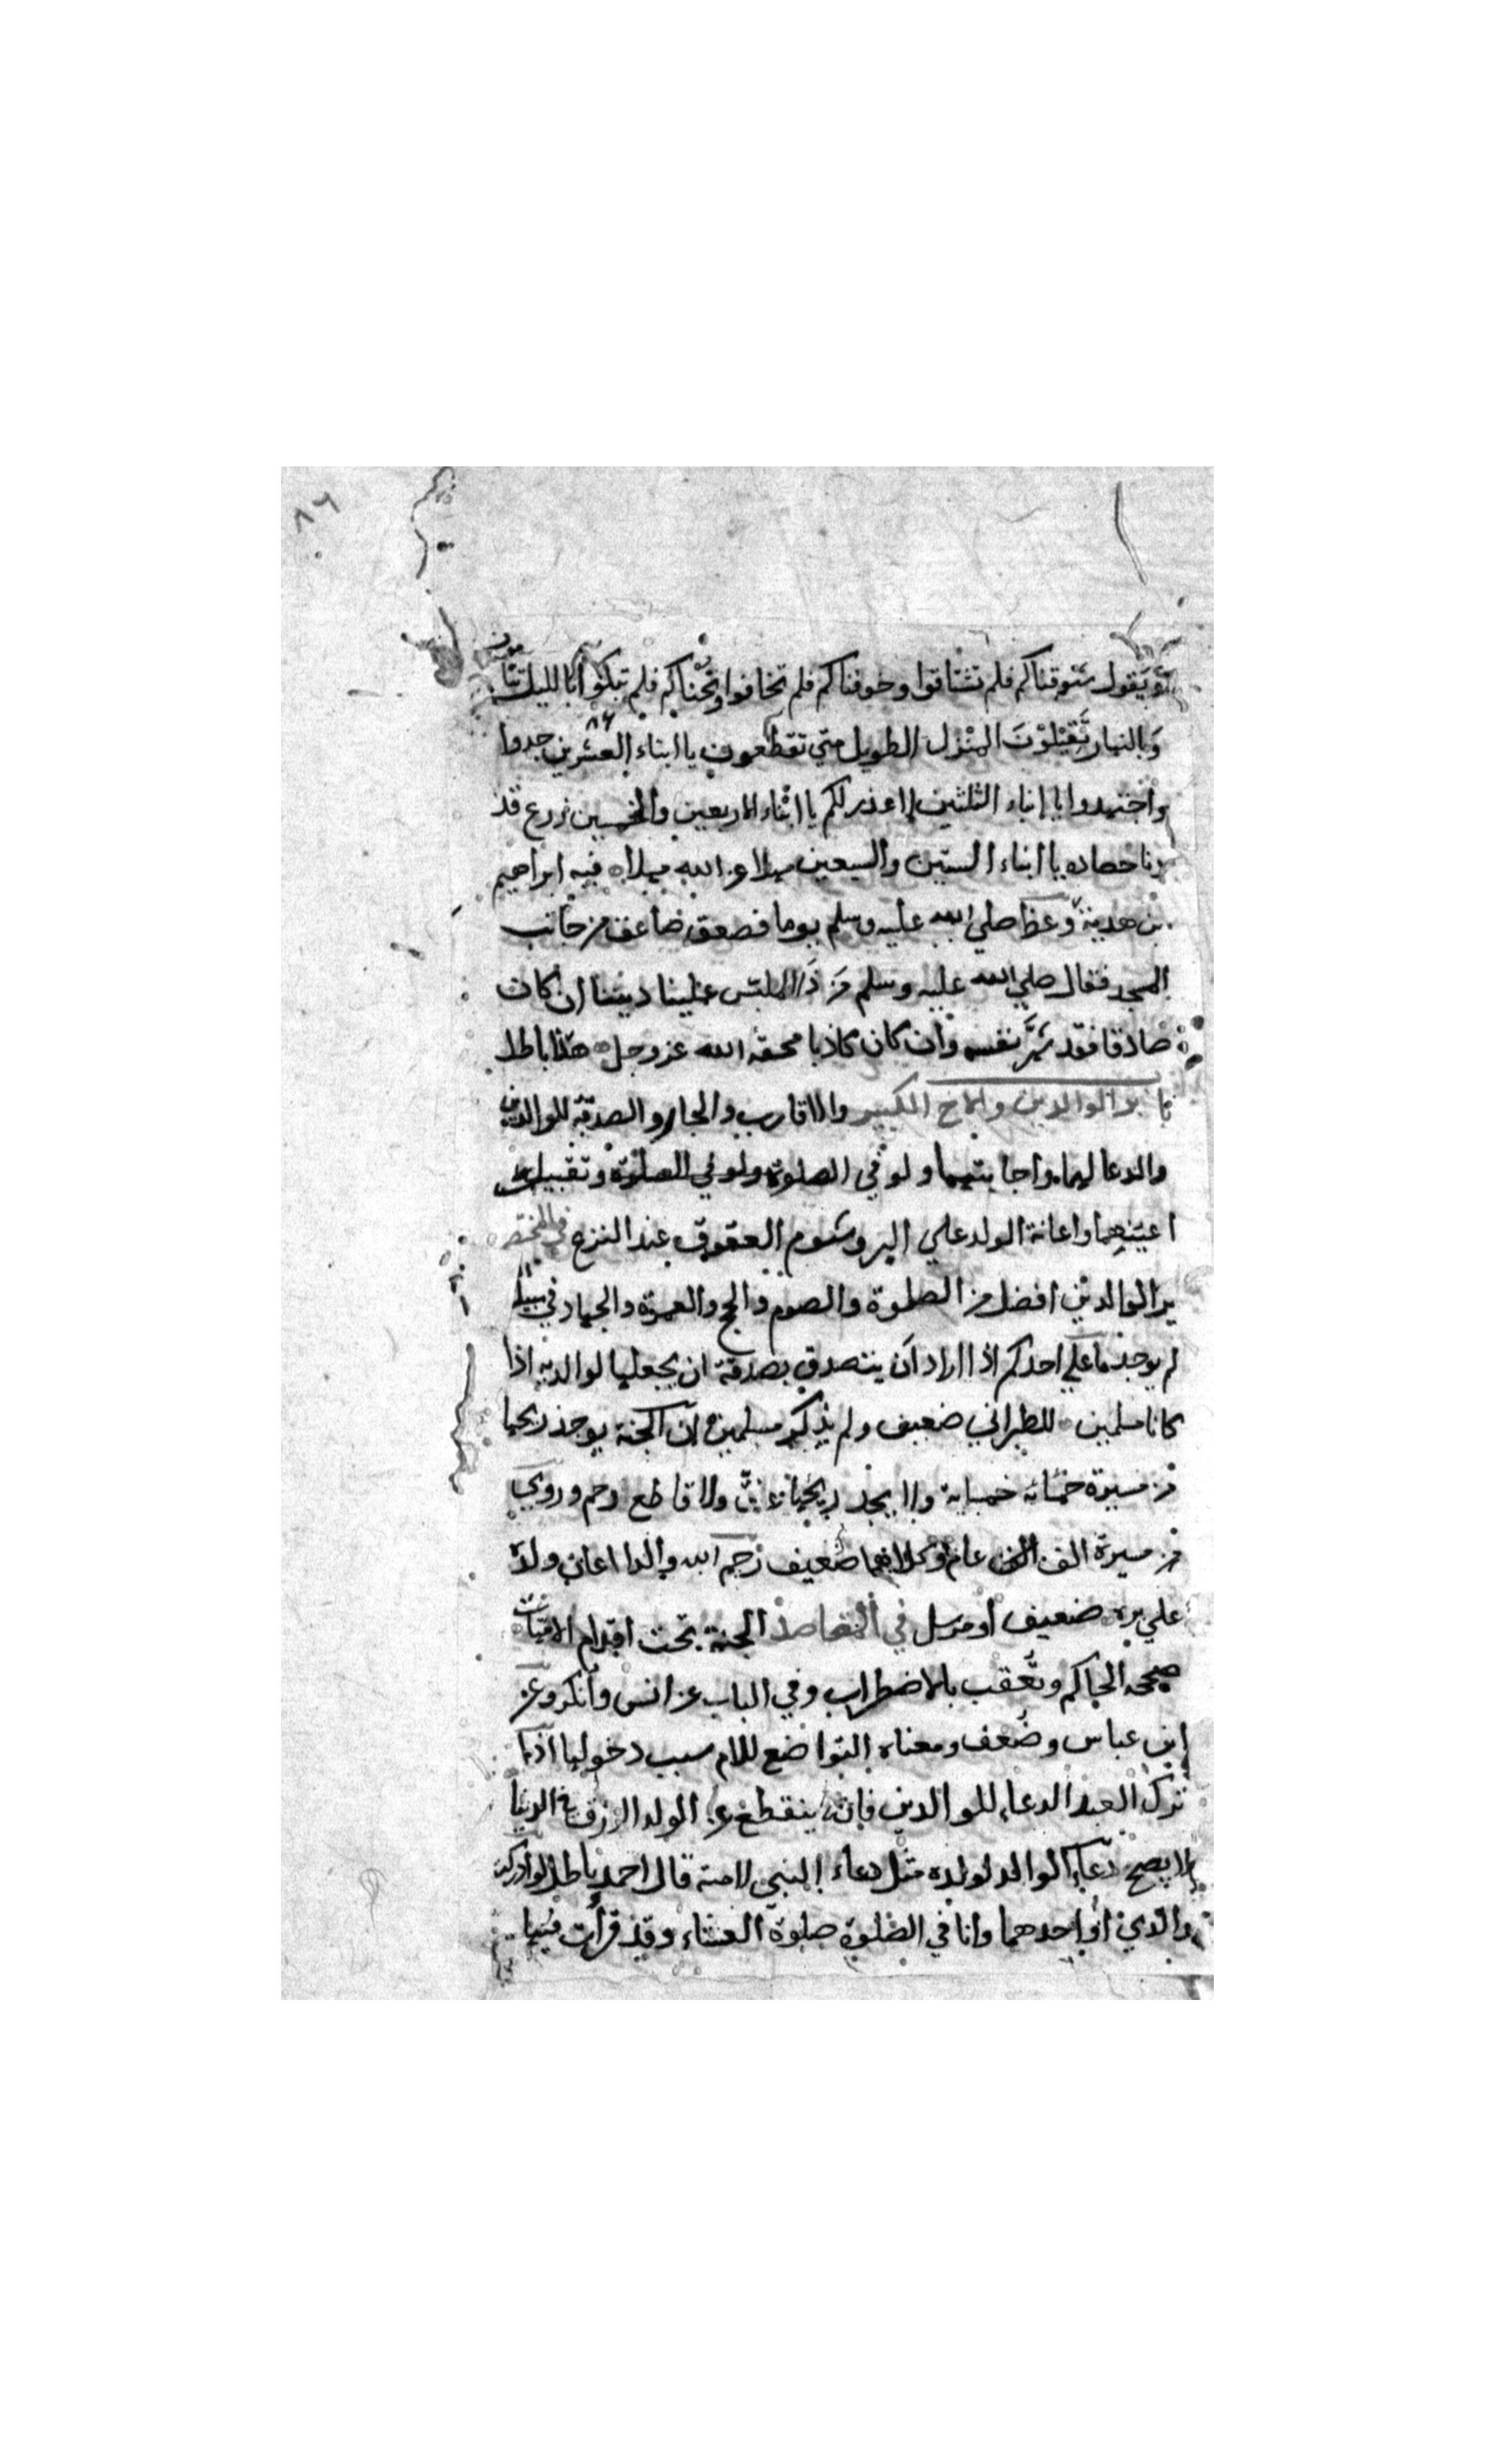 ٨٦
ويقول شوقناكم فلم تشتاقوا وخوفناكم فلم تخافوا ونحناكم فلم تبكوا ابالليل تنامون
وبالنهار تقيلون المنزل الطويل متى تقطعون يا ابناء العشرين جدوا
واجتهدوا يا ابناء الثلثين لا عذر لكم يا ابناء الاربعين والخمسين زرع قد
دنا حصاده يا ابناء الستين والسبعين مهلا عن الله مهلا فيه ابراهيم
بن هدبة وعظ صلي الله عليه وسلم يوما فصعق صاعق من جانب
المسجد فقال صلي الله عليه وسلم من ذا الملبس علينا ديننا ان كان
صادقا فقد شهر نفسه وان كان كاذبا محقه الله عز وجل هذا باطل
باب بر الوالدين والاخ الكبير والاقارب والجار والصدقة للوالدين
والدعا لهما واجابتهما ولو في الصلوة ولو في الصلوة وتقبيل
اعينهما واعانة الولد علي البر وشوم العقوق عند النزع في المختصر
بر الوالدين افضل من الصلوة والصوم والحج والعمرة والجهاد في سبيل
لم يوجد ما علي احدكم اذا اراد ان يتصدق بصدقة ان يجعلها لوالديه اذا
كانا مسلمين للطبراني ضعيف ولم يذكر مسلمين ان الجنة يوجد ريحها
من مسيرة خمسائة ولا يجد ريحها ولا قاطع رحم وروي
من مسيرة الف عام وكلاهما ضعيف رحم الله والدا اعان ولده
علي بره ضعيف او مرسل في المقاصد الجنة تحت اقدام الامهات
صححه الحاكم وتعقب بالاضطراب وفي الباب عن انس وانكر وعن
ابن عباس وضعف ومعناه التواضع للام سبب دخولها اذا
ترك العبد الدعاء للوالدين فانه ينقطع عن الولد الرزق في الدنيا
لا يصح دعاء الوالد لولده مثل دعاء النبي لامته قال احمد باطل لو ادركت
والدي او احدهما وانا في الصلوة صلوة العشاء وقد قرأت فيها